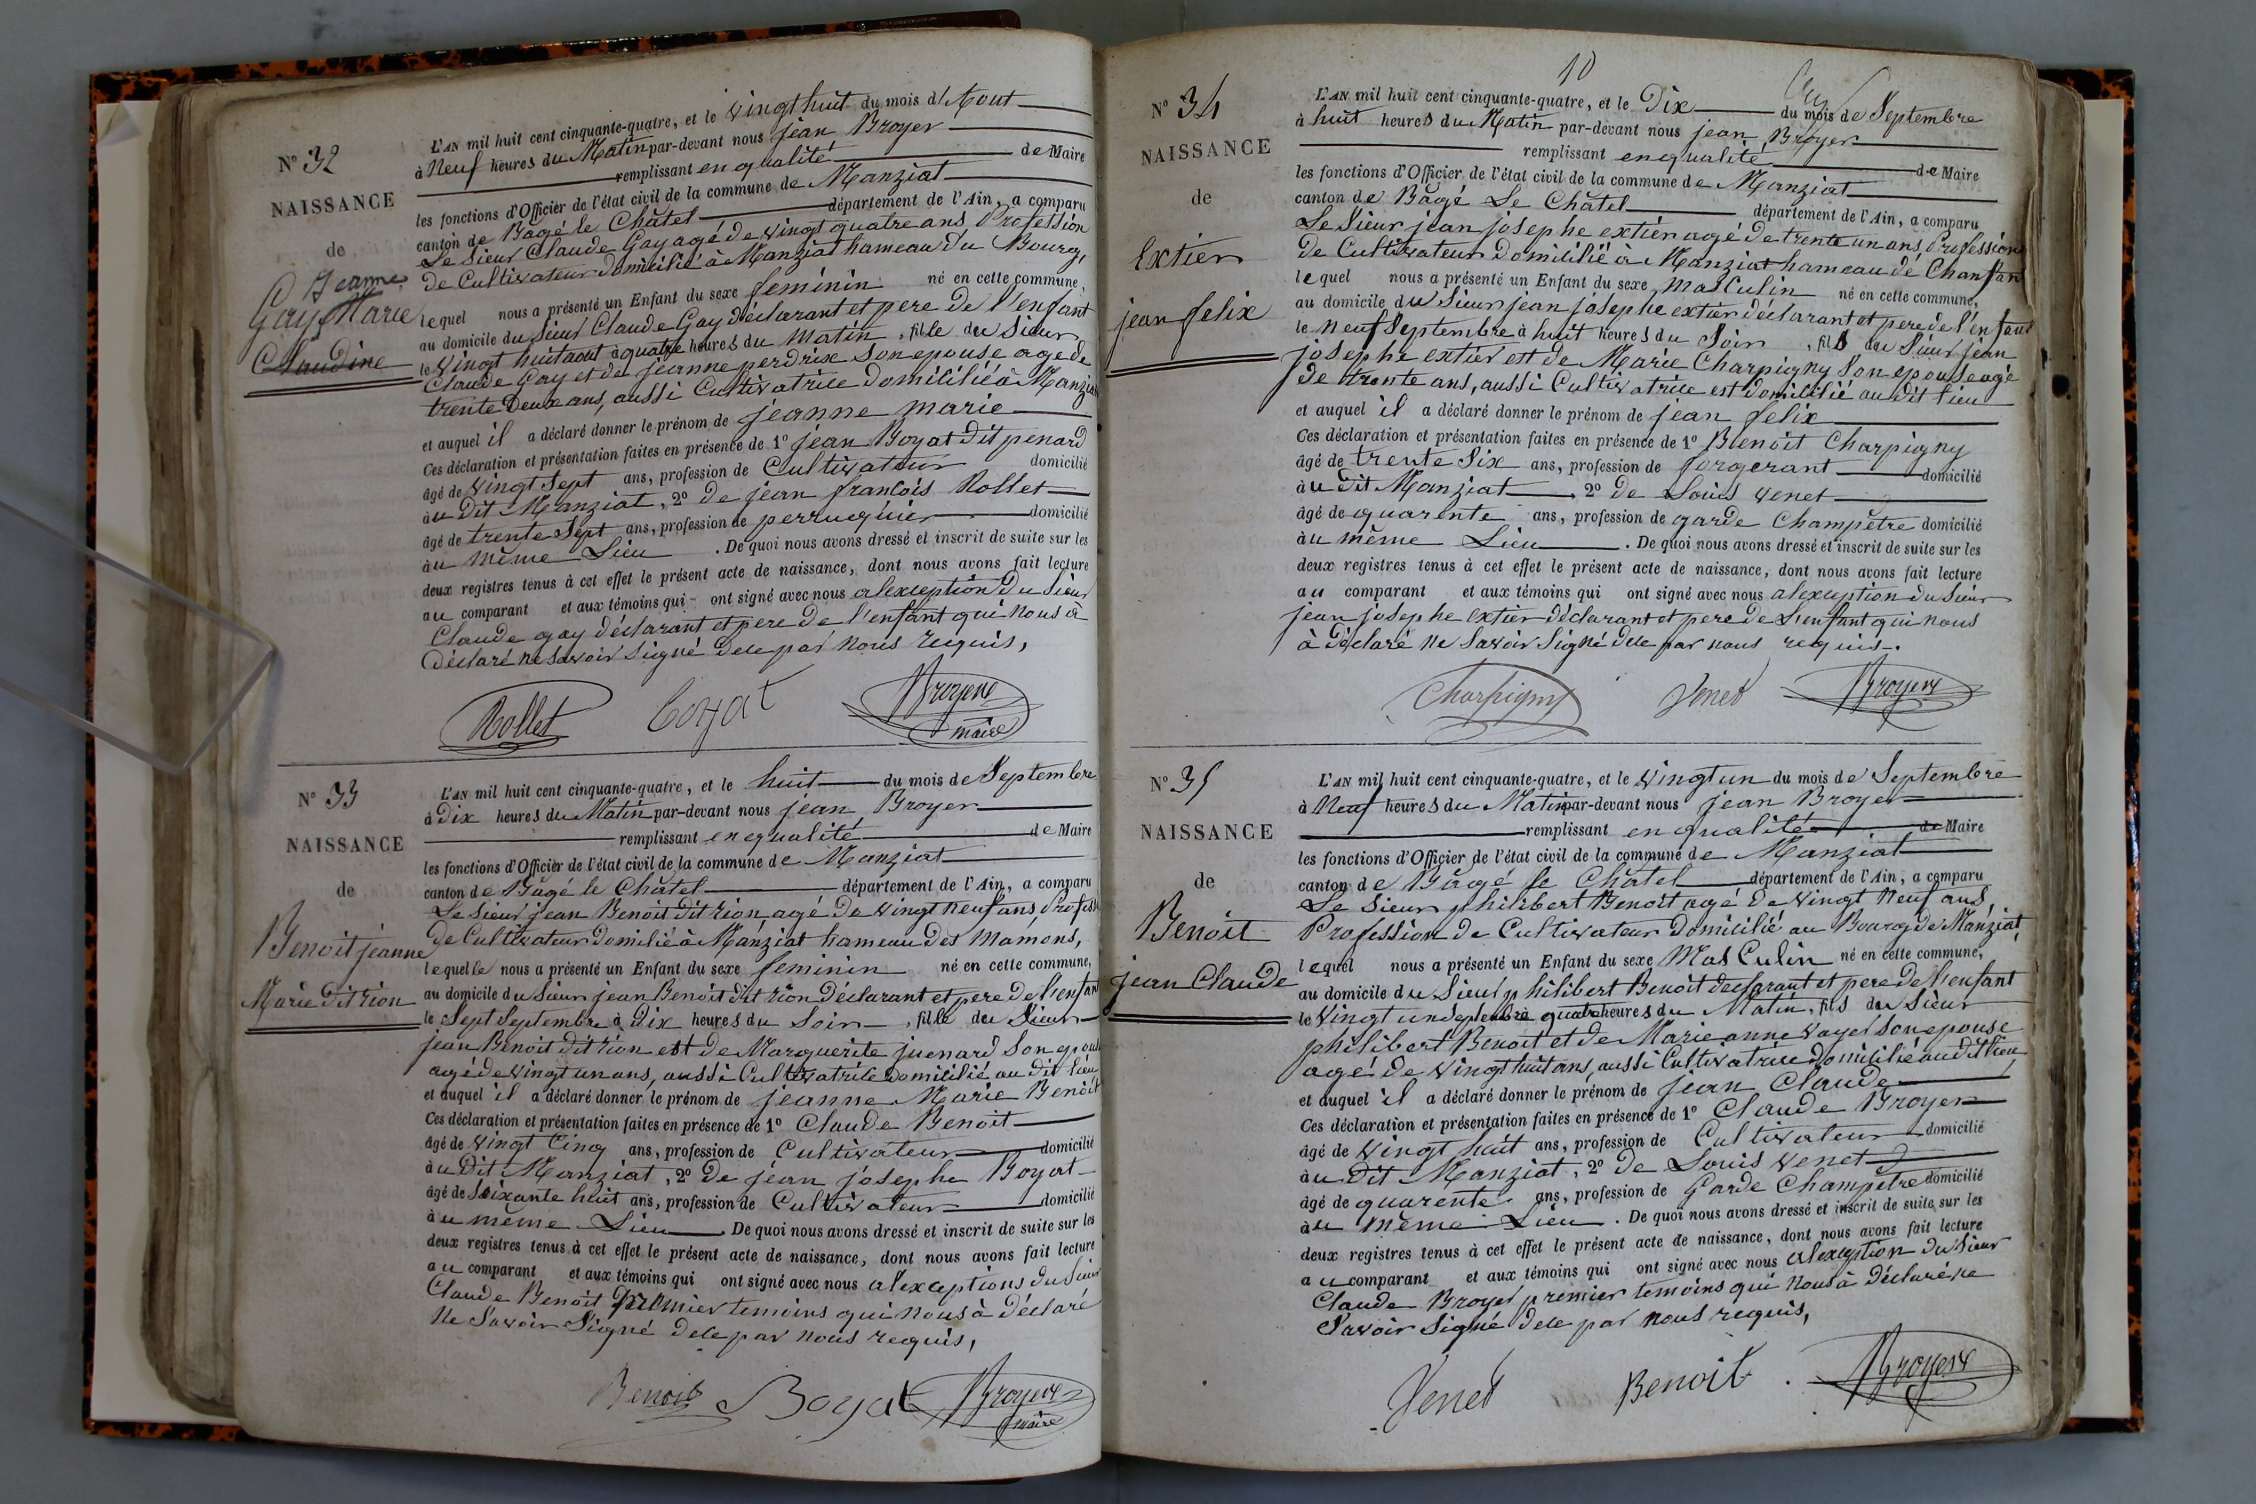 N° 32
NAISSANCE
de
Jeanne
Gay Marie
Claudine
L'AN mil huit cent cinquante-quatre, et le vingt huit du mois d'Aout
à Neuf heures du Matin par-devant nous jean Broyer
remplissant en qualité de Maire
les fonctions d'Officier de l'état civil de la commune de Manziat
canton de Bâgé le Châtel département de l'Ain, a comparu
Le Sieur Claude Gay agé de vingt quatre ans Profession
de Cultivateur domicilié à Manziat hameau du Bourg,
lequel nous a présenté un Enfant du sexe feminin né en cette commune,
au domicile du Sieur Claude Gay déclarant et pere de l'enfant
le Vingt huit aout à quatre heures du matin, fille du Sieur
Claude Gay et de jeanne perdrix Son epouse age de
trente Deux ans, aussi Cultivatrice domicilié à Manziat
et auquel il a déclaré donner le prénom de jeanne marie
Ces déclaration et présentation faites en présence de 1° jean Boyat dit penard
âgé de vingt Sept ans, profession de Cultivateur domicilié
au dit Manziat, 2° de jean francois Rollet
âgé de trente Sept ans, profession de perruquier domicilié
au même Lieu. De quoi nous avons dressé et inscrit de suite sur les
deux registres tenus à cet effet le présent acte de naissance, dont nous avons fait lecture
au comparant et aux témoins qui ont signé avec nous alexception du Sieur
Claude gay déclarant et pere de l'enfant qui nous à
déclaré ne Savoir Signé dele par nous requis,
Rollet Boyat Broyer
maire
N° 33
NAISSANCE
de
Benoit jeanne
Marie dit rion
L'AN mil huit cent cinquante-quatre, et le huit du mois de Septembre
à Dix heures du Matin par-devant nous jean Broyer
remplissant en qualité de Maire
les fonctions d'Officier de l'état civil de la commune de Manziat
canton de Bâgé le Châtel département de l'Ain, a comparu
Le Sieur jean Benoit dit rion, agé de vingt neuf ans, Profess
de Cultivateur domilié à Manziat hameau des mamons,
lequelle nous a présenté un Enfant du sexe feminin né en cette commune,
au domicile du Sieur jean Benoit dit rion déclarant et pere de l'enfant
le Sept Septembre à Dix heures du Soir, fille du Sieur
jean Benoit dit rion et de Marguerite juenard Son epouse
agé de vingt un ans, aussi Cultivatrice domicilié au dit lieu
et auquel il a déclaré donner le prénom de jeanne Marie Benoit
Ces déclaration et présentation faites en présence de 1° Claude Benoit
âgé de vingt Cinq ans, profession de Cultivateur domicilié
au dit Manziat, 2° de jean josephe Boyat
âgé de Soixante huit ans, profession de Cultivateur domicilié
au même Lieu. De quoi nous avons dressé et inscrit de suite sur les
deux registres tenus à cet effet le présent acte de naissance, dont nous avons fait lecture
au comparant et aux témoins qui ont signé avec nous alexceptions du Sieur
Claude Benoit premier temoins qui nous à déclaré
ne Savoir Signé dele par nous requis,
Benoit Boyat Broyer
maire
10
N° 34
NAISSANCE
de
Extier
jean felix
L'AN mil huit cent cinquante-quatre, et le Dix du mois de Septembre
à huit heures du Matin par-devant nous jean Broyer
remplissant en qualité de Maire
les fonctions d'Officier de l'état civil de la commune de Manziat
canton de Bâgé Le Châtel département de l'Ain, a comparu
Le Sieur jean josephe extier agé de trente un ans, Profession
de Cultivateur domicilié à Manziat hameau de Chanfan
lequel nous a présenté un Enfant du sexe masculin né en cette commune,
au domicile du Sieur jean josephe extier déclarant et pere de l'enfant
le neuf Septembre à huit heures du Soir, fils du Sieur jean
josephe extier et de Marie Charpigny Son epouse agé
de trente ans, aussi Cultivatrice est domicilié au dit lieu
et auquel il a déclaré donner le prénom de jean felix
Ces déclaration et présentation faites en présence de 1° Benoit Charpigny
âgé de trente Six ans, profession de forgerant domicilié
au dit Manziat, 2° de Louis Venet
âgé de quarente ans, profession de garde Champêtre domicilié
au même Lieu. De quoi nous avons dressé et inscrit de suite sur les
deux registres tenus à cet effet le présent acte de naissance, dont nous avons fait lecture
au comparant et aux témoins qui ont signé avec nous alexception du Sieur
jean josephe extier déclarant et pere de L'enfant qui nous
à déclaré ne Savoir Signé dele par nous requis.
Charpigny Venet Broyer
N° 35
NAISSANCE
de
Benoit
jean Claude
L'AN mil huit cent cinquante-quatre, et le vingt un du mois de Septembre
à Neuf heures du Matin par-devant nous jean Broyer
remplissant en qualité de Maire
les fonctions d'Officier de l'état civil de la commune de Manziat
canton de Bâgé le Châtel département de l'Ain, a comparu
Le Sieur philibert Benoit agé de vingt Neuf ans,
Profession de Cultivateur domicilié au Bourg de Manziat,
lequel nous a présenté un Enfant du sexe Mas Culin né en cette commune,
au domicile du Sieur philibert Benoit declarant et pere de l'enfant
le Vingt un Septembre à quatre heures du Matin, fils du Sieur
philibert Benoit et de Marie anne Voyer Son epouse
agé de vingt huit ans, aussi Cultivatrice domicilié au dit lieu
et auquel il a déclaré donner le prénom de jean Claude
Ces déclaration et présentation faites en présence de 1° Claude Broyer
âgé de vingt huit ans, profession de Cultivateur domicilié
au dit Manziat, 2° de Louis Venet
âgé de quarente ans, profession de Garde Champêtre domicilié
au même Lieu. De quoi nous avons dressé et inscrit de suite sur les
deux registres tenus à cet effet le présent acte de naissance, dont nous avons fait lecture
au comparant et aux témoins qui ont signé avec nous alexception du Sieur
Claude Broyer premier temoins qui nous à déclaré ne
Savoir Signé dele par nous requis,
Venet Benoit Broyer